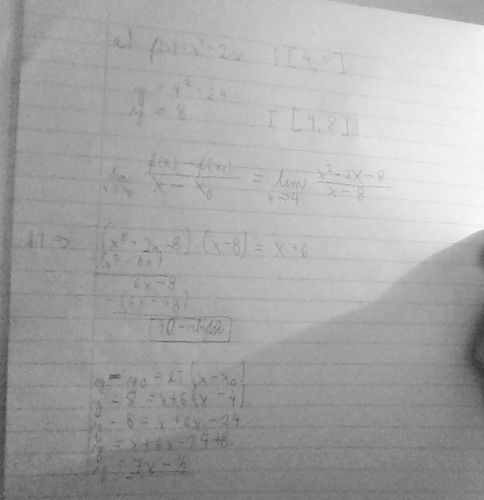 a) f(x)=x²-2x I [4, ]
y = 4² - 2·4
y = 8 I [4,8]
lim f(x) - f(x₀) / x - x₀ = lim x→4 x²-2x-8 / x-8
(x² - 2x - 8) : (x-8) = x+6
(x² - 8x)
6x - 8
- (6x - 48)
40 -
y - y₀ = (x - x₀)
y - 8 = x+6 (x - 4)
y - 8 = x + 6x - 24
y = x + 6x - 24 + 8
y = 7x -